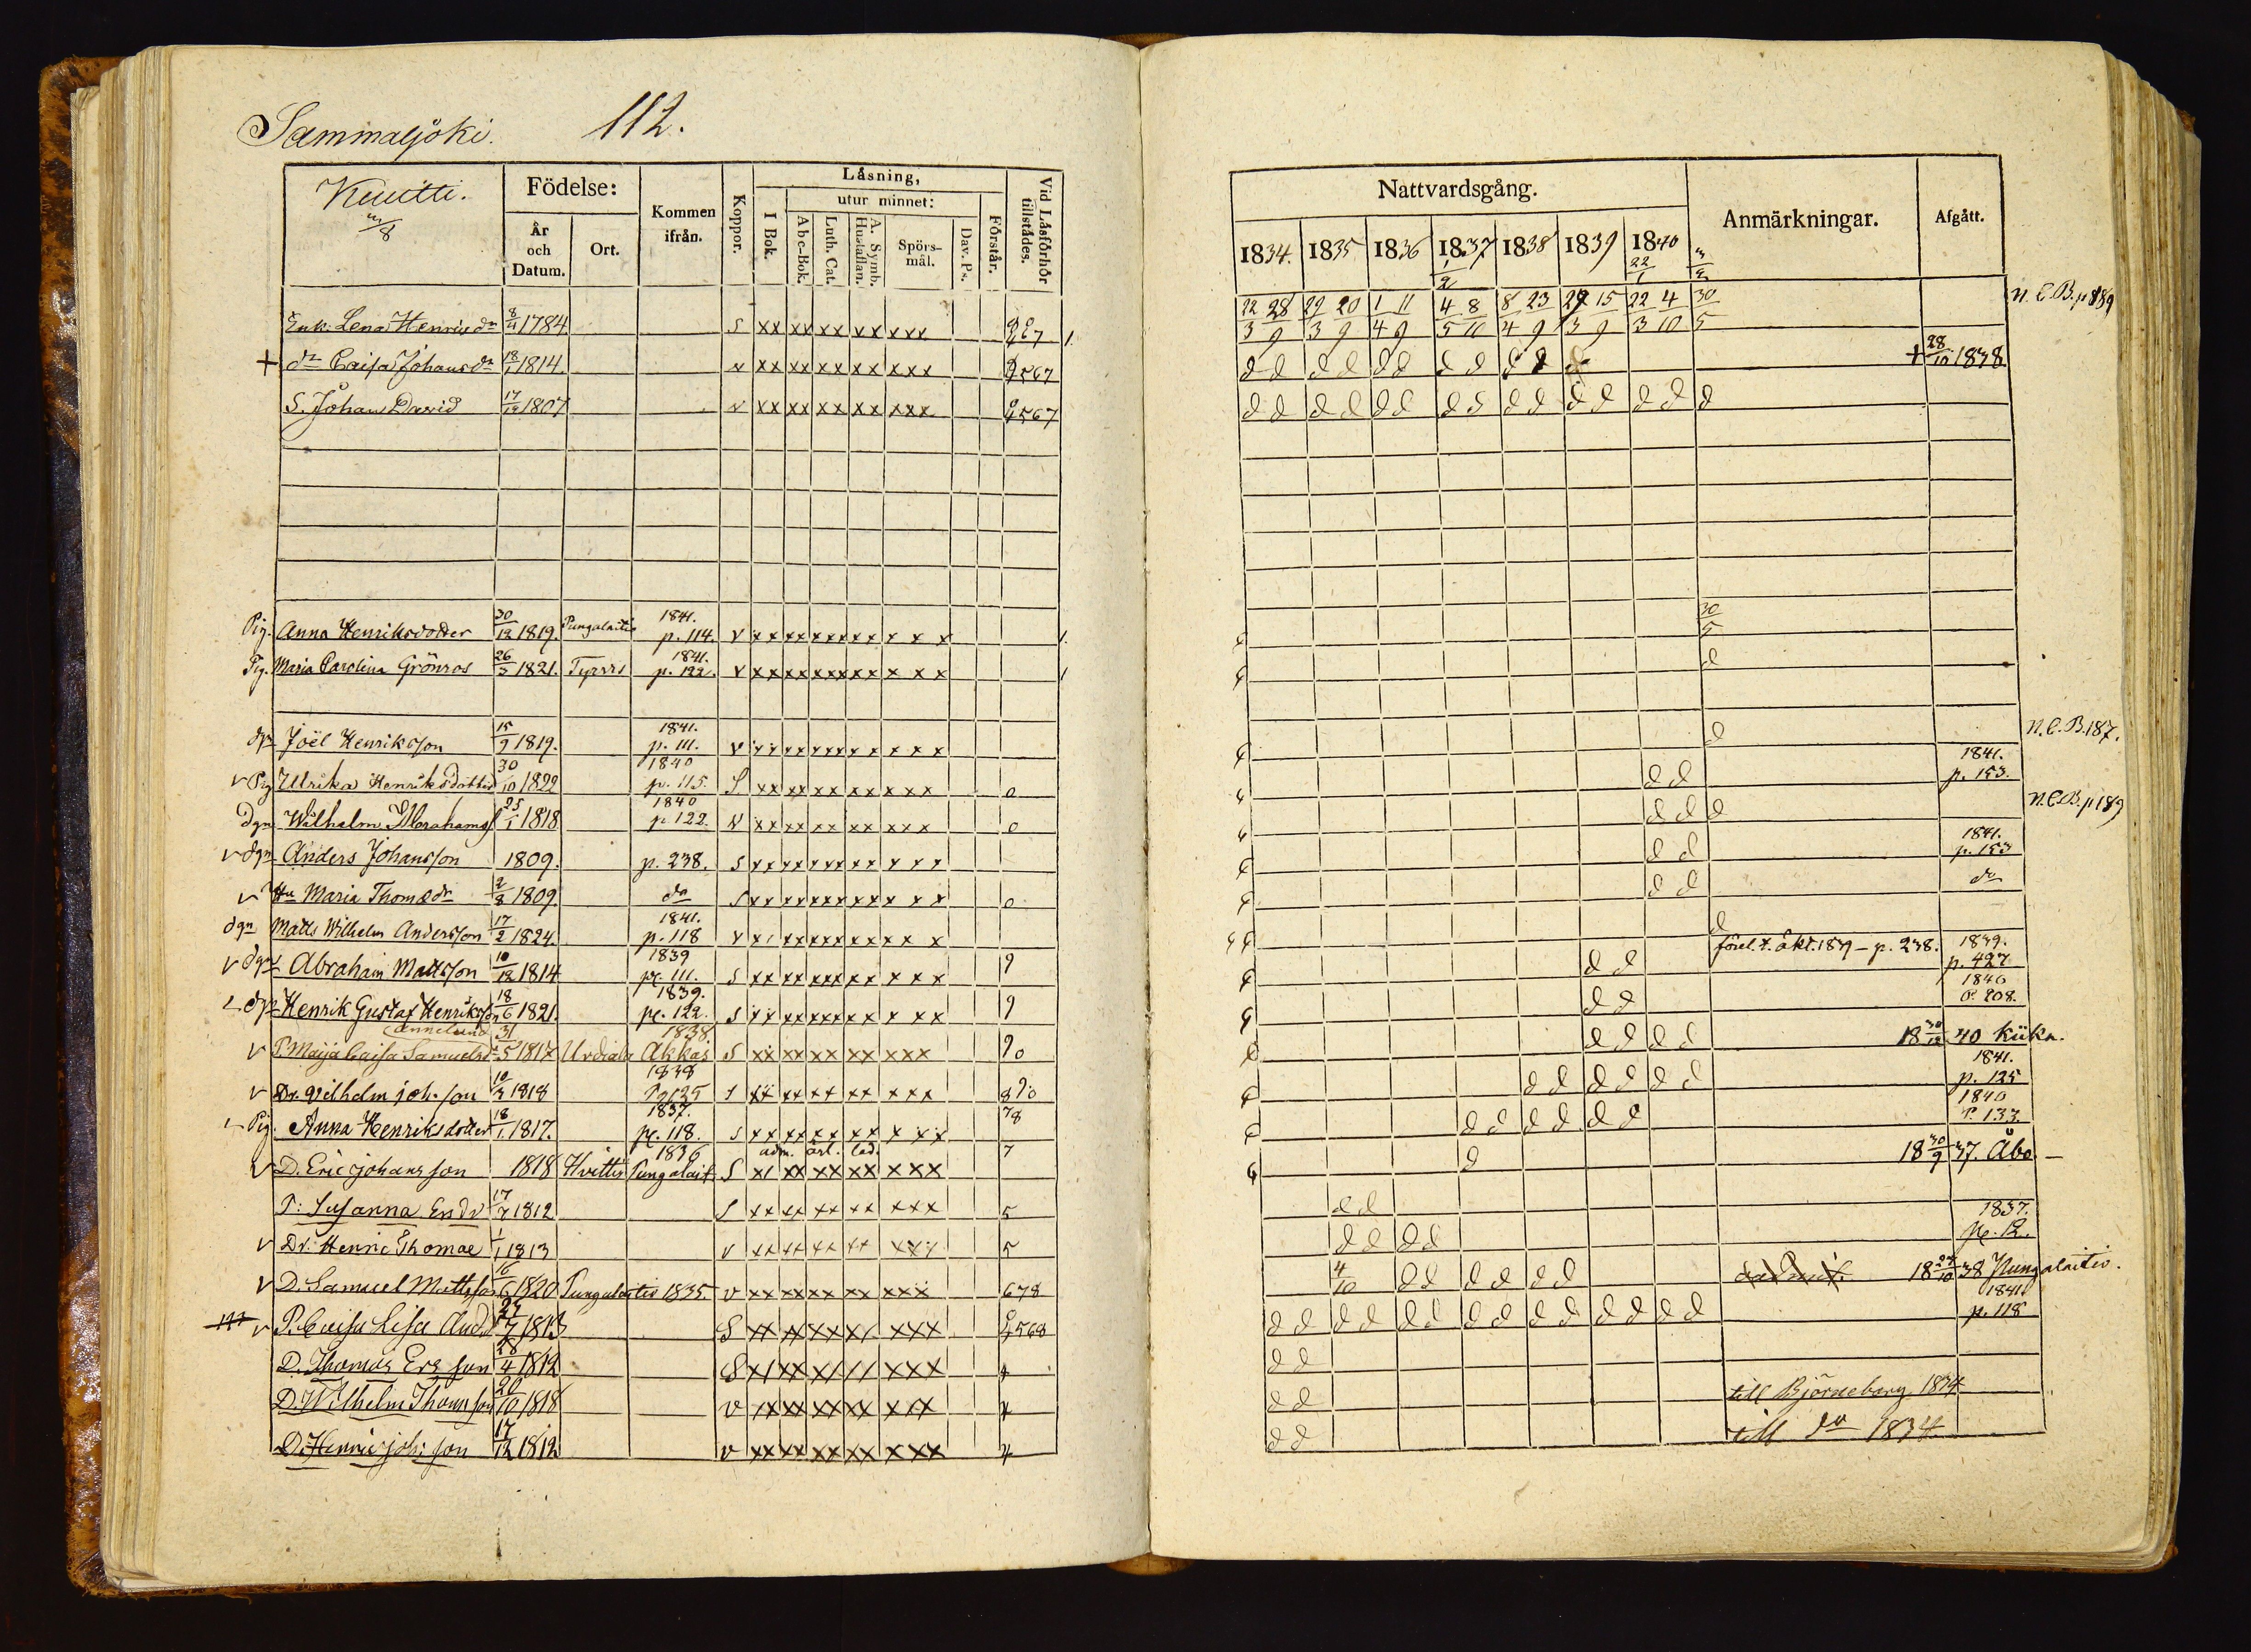 Sammaljoki. 112.
Kuutti.
Födelse:
År och Datum.
Ort.
Kommen ifrån.
Koppor.
Låsning,
I Bok.
utur minnet:
Abc-Bok.
Luth. Cat.
A. Symb. Hustaflan.
Spörs-mål.
Dav. Ps.
Förstår.
Vid Låsförhör tillstådes.
Enk. Lena Henrics dr 8/4 1784 S xx xx xx xx xxx
+ dr Caisa Johans dr 18/1 1814 v xx xx xx xx xxx 4567
S. Johan David 17/12 1807 v xx xx xx xx xxx 4567
Pig. Anna Henriksdotter 30/12 1819. Pungalaitio 1841. p. 114. v xx xx xxx xx x x x 1.
Pig. Maria Carolina Grönros 26/3 1821. Tyrvis 1841. p. 122. v xx xx xxx xx x x x 1
dgn Joël Henriksson 15/9 1819. 1841. p. 111. v xx xx xxx x x x x x
v Pig Ulrika Henriksdotter 30/10 1822 1840 p. 115. S xx xx xx xx xxx 0
Dgn Wilhelm Abrahams 25/1 1818 1840 p. 122. v xx xx xx xx xxx 0
v dgn Anders Johansson 1809. p. 238. s xx xx xx xx x x x
v Hu Maria Thomædr 2/8 1809. do s xx xx xx xx x x x 0
dgn Matts Wilhelm Andersson 17/2 1824. 1841. p. 118 v x xx xxx xx x x x
v dgn Abraham Mattsson 10/12 1814 1839 p. 111. s xx xx xxx xx x x x 9
v dgn Henrik Gustaf Henriksson 18/6 1821. 1839. p. 122. s xx xx xxx xx x x x 9
Annelund
v P. Maija Caisa Samuelsd 31/5 1817 Urdiala 1838. Akkas S xx xx xx xx xxx 90
v Dr. Vilhelm joh. son 10/3 1818 1838 s xx xx xx xx xxx 890
v Pig. Anna Henriksdotter 18/1 1817. 1837. p. 118. s xx xx xx xx x xx 78
adm.
v D. Eric johans son 1818 Hvittis 1836 Pungalait. S x/ xx xx xx xxx 7
P: Susanna Endr 17/7 1812 S xx xx xx xx xxx 5
v Dr: Henric Thomae 1/1 1813 v xx xx xx xx xxx 5
v D. Samuel Mattsson 16/6 1820 Pungalaitio 1835. v xx xx xx xx xxx 678
v P. Caisa Lisa And. 27/7 1813 S xx xx xx x/ xxx 4568
D. Thomas Ers son 28/4 1812 S x/ xx x/ // xxx 4
D. Wilhelm Thomsson 20/10 1818 v /x xx xx xx x/x 4
D. Henric joh: son 17/12 1812 v xx xx xx xx xxx 4
Nattvardsgång.
Anmärkningar.
Afgått.
1834. 1835 1836 1837 1838 1839 1840
1/2 22/1
22/3 28/9 22/3 20/9 1/4 11/9 4/5 8/10 8/4 23/9 15/9 22/3 4/10 30/5
N. C. B. p 189
d d d d d d d d d d + 28/10 1838.
d d d d d d d d d d d d d d d
30/5
d
d N. C. B. 187.
d d 1841. p. 153.
d d d N. C. B. p 189
d d 1841. p. 153
d d do
d
d d förel. t. åkt. 1839 – p. 238. 1839. p. 427
d d 1840 P. 208.
d d d d 18 30/12 40 Kiika.
d d d d d d 1841. p. 125
d d d d d d 1840 P. 133.
d 18 30/9 37. Åbo –
d d
d d d d 1837. p. 12.
4/10 d d d d d d 18 27/10 38 Pungalaitio.
d d d d d d d d d d d d d d 1841. p. 118
d d
d d till Björneborg 1834
d d till do 1834